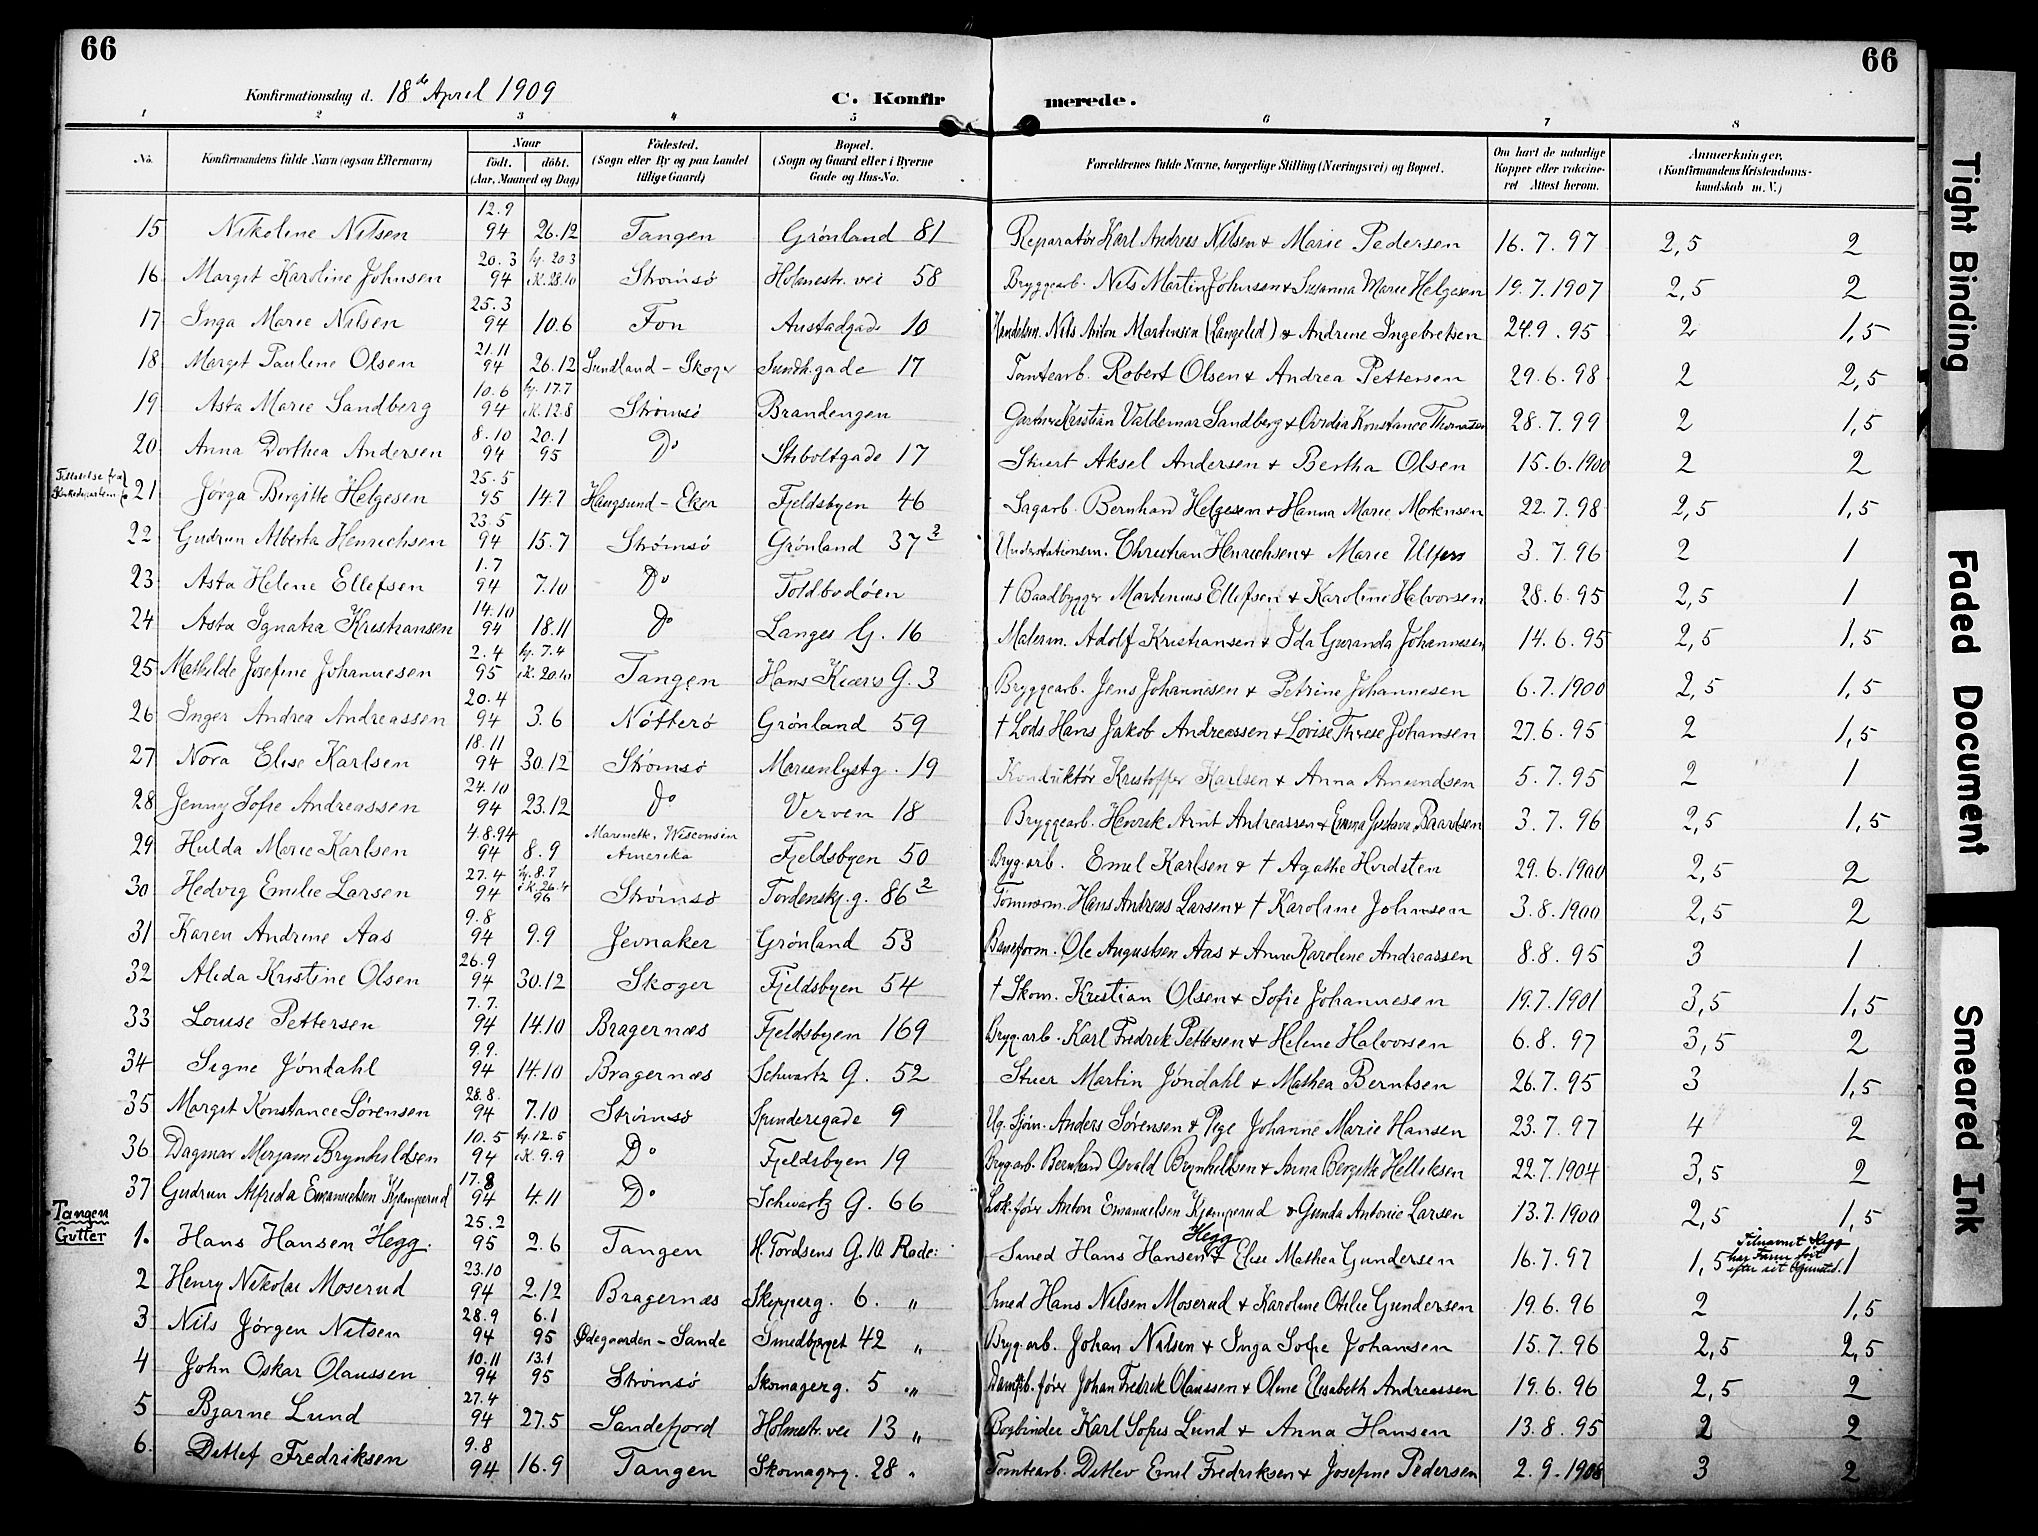 66
66
Konfirmationsdag d. 18de April 1909
C. Konfirmerede.
1 2 3 4 5 6 7 8
No. Konfirmandens fulde Navn (ogsaa Efternavn) Naar født. døbt. (Aar, Maaned og Dag) Fødested. (Sogn eller By og paa Landet tillige Gaard) Bopæl. (Sogn og Gaard eller i Byerne Gade og Hus-No. Forældrenes fulde Navne, borgerlige Stilling (Næringsvei) og Bopæl. Om havt de naturlige Kopper eller vaccineret Attest herom. Anmærkninger. (Konfirmandens Kristendomskundskab m. V.)
15 Nikoline Nilsen 12.9 94 26.12 Tangen Grønland 81 Reparatør Karl Andreas Nilsen & Marie Pedersen 16.7.97 2,5 2
16 Margit Karoline Johnsen 20.3 94 hj. 20.3 i K. 28.10 Strømsø Holmestr. vei 58 Bryggearb. Nils Martin Johnsen & Susanna Marie Helgesen 19.7.1907 2,5 2
17 Inga Marie Nilsen 25.3 94 10.6 Fon Austadgade 10 Handelsm. Nils Anton Martinsen (Langeled) & Andrine Ingebretsen 24.9.95 2 1,5
18 Margit Pauline Olsen 21.11 94 26.12 Sundland - Skoger Sundh.gade 17 Tomtearb. Robert Olsen & Andrea Pettersen 29.6.98 2 2,5
19 Asta Marie Sandberg 10.6 94 hj. 17.7 i K. 12.8 Strømsø Brandengen Gartner Kristian Valdemar Sandberg & Ovidia Konstance 28.7.99 2 1,5
20 Anna Dorthea Andersen 8.10 94 20.1 95 Do Stiboltgade 17 Stuert Aksel Andersen & Bertha Olsen 15.6.1900 2 2
Tilladelse fra
21 Jørga Birgitte Helgesen 25.5 95 14.7 Haugsund - Eker Fjeldsbyen 46 Sagarb. Bernhard Helgesen & Hanna Marie Mortensen 22.7.98 2,5 1,5
22 Gudrun Alberta Henrichsen 23.5 94 15.7 Strømsø Grønland 37 2 Christian Henrichsen & Marie 3.7.96 2 1
23 Asta Helene Ellefsen 1.7 94 7.10 Do Toldbodøen † Baadbygger Martinius Ellefsen & Karoline Halvorsen 28.6.95 2,5 1
24 Asta Ignatia Kristiansen 14.10 94 18.11 Do Langes G. 16 Malerm. Adolf Kristiansen & Ida Guranda Johannesen 14.6.95 2,5 1,5
25 Mathilde Josefine Johannesen 2.4 95 hj. 7.4 i K. 20.10 Tangen Hans Kiærs G. 3 Bryggearb. Jens Johannesen & Petrine Johannesen 6.7.1900 2,5 1,5
26 Inger Andrea Andreassen 20.4 94 3.6 Nøtterø Grønland 59 † Lods Hans Jakob Andreassen & Lovise Therese Johansen 27.6.95 2 1,5
27 Nora Elise Karlsen 18.11 94 30.12 Strømsø Marienlystg. 19 Konduktør Kristoffer Karlsen & Anna Amundsen 5.7.95 2 1
28 Jenny Sofie Andreassen 24.10 94 23.12 Do Verven 18 Bryggearb. Henrik Arnt Andreassen & Emma Gustava Baardsen 3.7.96 2,5 1,5
29 Hulda Marie Karlsen 4.8.94 94 8.9 Marinette, Wisconsin Amerika Fjeldsbyen 50 Bryg.arb. Emil Karlsen & † Agathe Hvidsten 29.6.1900 2,5 2
30 Hedvig Emilie Larsen 27.4 94 hj. 8.7 i K. 26.4 96 Strømsø Tordenskj.g. 86 2 Tømmerm. Hans Andreas Larsen & † Karoline Johnsen 3.8.1900 2,5 2
31 Karen Andrine Aas 9.8 94 9.9 Jevnaker Grønland 53 Baneform. Ole Augustsen Aas & Anne Karoline Andreassen 8.8.95 3 1
32 Alida Kristine Olsen 26.9 94 30.12 Skoger Fjeldsbyen 54 † Skom. Kristian Olsen & Sofie Johannesen 19.7.1901 3,5 1,5
33 Louise Pettersen 7.7. 94 14.10 Bragernæs Fjeldsbyen 169 Bryg.arb. Karl Fredrik Pettersen & Helene Halvorsen 6.8.97 3,5 2
34 Signe Jøndahl 9.9. 94 14.10 Bragernæs Schwartz G. 52 Stuer Martin Jøndahl & Mathea Berntsen 26.7.95 3 1,5
35 Margit Konstance Sørensen 28.8. 94 7.10 Strømsø Spinderigade 9 Ug. Sjøm. Anders Sørensen & Pige Johanne Marie Hansen 23.7.97 4 2
36 Dagmar Merjam Brynhildsen 10.5 94 hj. 12.5 i K. 9.9 Do Fjeldsbyen 19 Bryg.arb. Bernhard Osvald Brynhildsen & Anna Birgitte Helliksen 22.7.1904 3,5 2
37 Gudrun Alfreda Emanuelsen Kjemperud 17.8 94 4.11 Do Schwartz G. 66 Lok.fører Anton Emanuelsen Kjemperud & Gunda Antonie Larsen 13.7.1900 2,5 1,5
Tangen
Gutter
1. Hans Hansen Hegg. 25.2 95 2.6 Tangen H. Tordsens G. 10 Rode: Smed Hans Hansen Hegg & Elise Mathea Gundersen 16.7.97 1,5 Tilnavnet Hegg har Farm. ført efter sit 1
2 Henry Nikolai Moserud 23.10 94 2.12 Bragernæs Skipperg. 6. " Smed Hans Nilsen Moserud & Karoline Otilie Gundersen 19.6.96 2 1,5
3 Nils Jørgen Nilsen 28.9 94 6.1 95 Ødegaarden - Sande Smedbyget 42 " Bryg.arb. Johan Nilsen & Inga Sofie Johansen 15.7.96 2,5 2,5
4 John Oskar Olaussen 10.11 94 13.1 95 Strømsø Skomagerg. 5 " Dampb.fører Johan Fredrik Olaussen & Oline Elisabeth Andreassen 19.6.96 2,5 2
5 Bjarne Lund 27.4 94 27.5 Sandefjord Holmestr. vei 13 " Bogbinder Karl Sofus Lund & Anna Hansen 13.8.95 2 2
6. Ditlef Fredriksen 9.8 94 16.9 Tangen Skomagerg. 28 " Tomtearb. Ditlev Emil Fredriksen & Josefine Pedersen 2.9.1908 3 2
Tight Binding
Faded Document
Smeared Ink